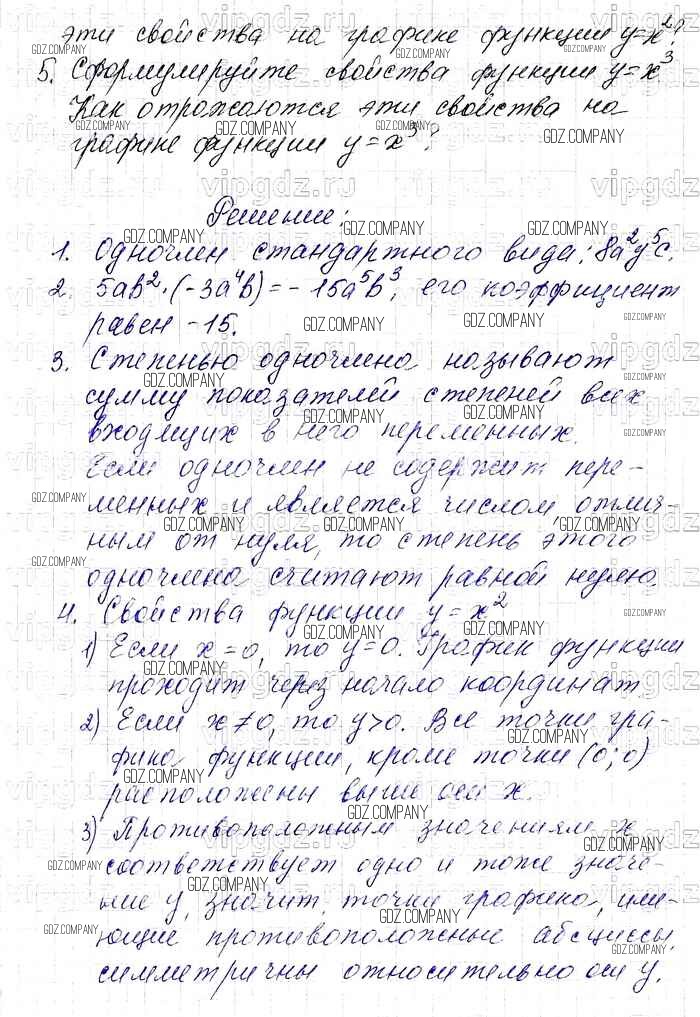 эти свойства на графике функции y=x²?
5. Сформулируйте свойства функции y=x³
Как отражаются эти свойства на
графике функции y=x³?
Решение:
1. Одночлен стандартного вида: 8a²y⁵c.
2. 5ab²·(-3a⁴b)=-15a⁵b³, его коэффициент
равен -15.
3. Степенью одночлена называют
сумму показателей степеней всех
входящих в него переменных.
Если одночлен не содержит пере-
менных и является числом отлич-
ным от нуля, то степень этого
одночлена считают равной нулю.
4. Свойства функции y=x²
1) Если x=0, то y=0. График функции
проходит через начало координат
2) Если x≠0, то y>0. Все точки гра-
фика функции, кроме точки (0;0)
расположены выше оси x.
3) Противоположным значениям x
соответствует одно и тоже значе-
ние y, значит точки графика, име-
ющие противоположные абсциссы,
симметричны относительно оси y.